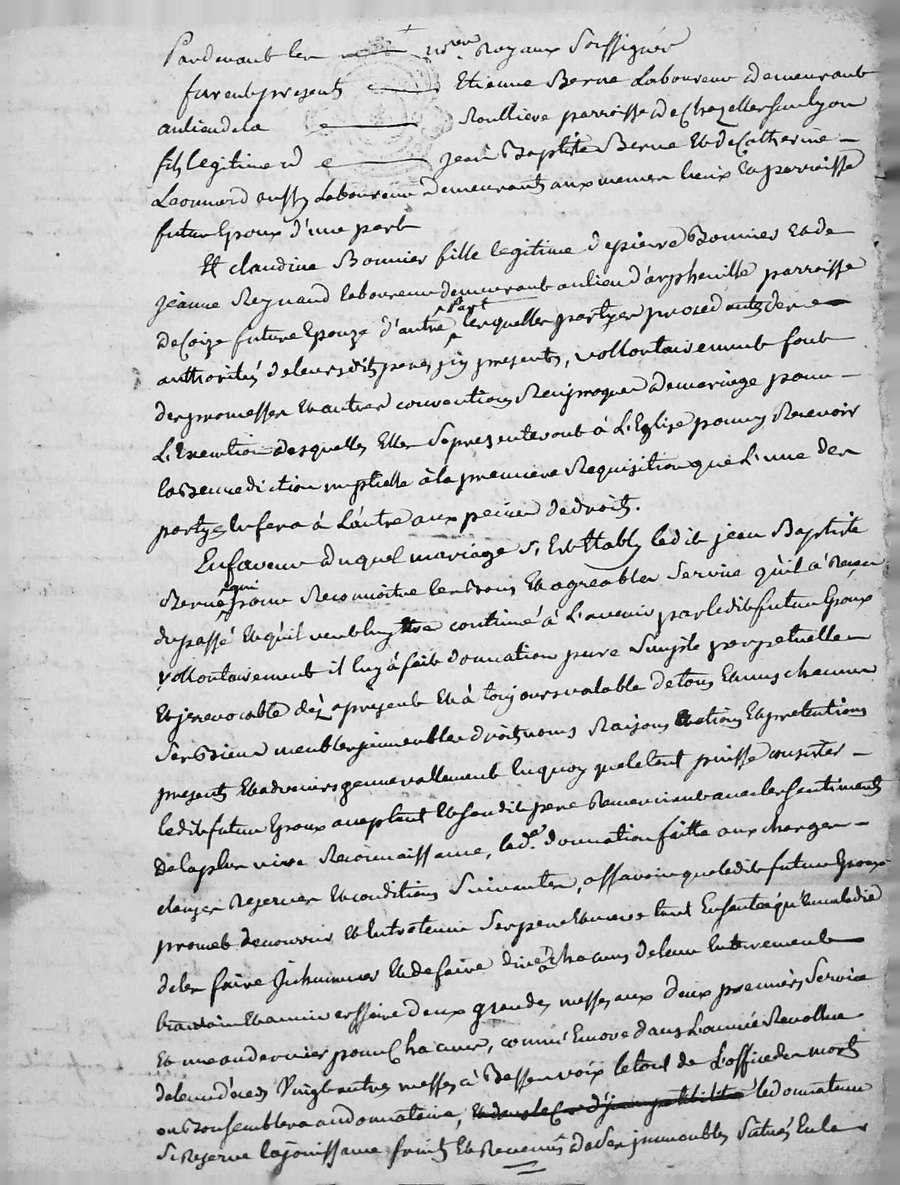 Pardevant les nres Royaux soussignés
furent presents Etienne Berne Laboureur demeurant
au lieu de la Roulliere parroisse de Chazelles sur lyon
fils legitime d e Jean Baptiste Berne et de Catherine
Leonnard aussy Laboureur demeurants aux memes lieux et parroisse
futur Epoux d'une part
Et claudine Bonnier fille legitime de pierre Bonnier et de
jeanne Reynaud laboureur demeurant au lieu d'arpheuille parroisse
de Coize future Epouze d'autre part lesquelles partyes procedants de
authorités de leursdits peres jcy presents, vollontairement font
des promesses et autres conventions Reciproques de mariage pour
L'Execution desquelles Elles se presenteront à L'Eglise pour y Recevoir
la Benediction nuptialle à la premiere Requisition que L'une des
partyes En fera à L'autre aux peines de droits.
En faveur duquel mariage s'Est Etably ledit jean Baptiste
Berne qui pour Reconnoitre les Bons Et agreables service qu'il a Reçeu
du passé Et qu'il veut luy Etre continué à L'avenir par ledit futur Epoux
vollontairement il luy à fait donnation pure simple perpetuelle
Et jrrevocable dès àprésent Et à toujours valable de tous Et uns chacuns
ses Biens meubles jmmeubles droits noms Raisons Et actions Et pretentions
presents Et advenirs generallement En quoy quelle tout puisse consister
ledit futur Epoux acceptant Et sondit pere Remerciant avec les sentiments
de la plus vive Reconnaissance, lad.e donnation faitte aux charges
clauses Reserves Et conditions suivantes, assavoir que ledit futur Epoux
promet de nourrir Et Entretenir ses pere Et mere tant En santé qu'En maladie
de les faire Jnhummer Et de faire dire à chacuns de leur Enterrement
trantain Et anniverssaire deux grandes messes aux deux premiers service
Et une au dernier pour Chacuns, comme Encore dans L'année Revollue
de leur décès Vingt autres messes à Basse voix le tout de L'office des morts
ou Bon semblera au donnataire, le donnateur
se Reserve la jouissance fruits Et Revenus de ses jmmeubles scitués En la